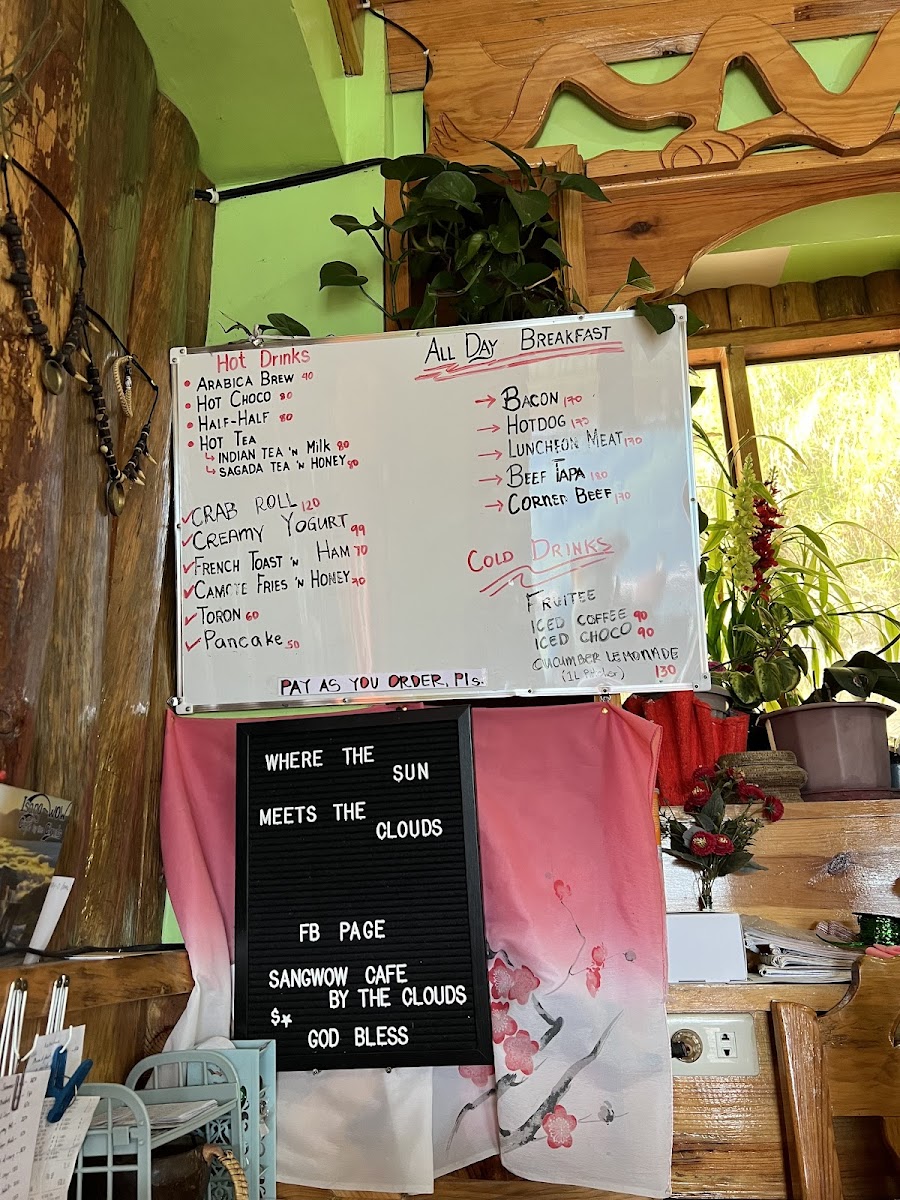 Hot Drinks
ARABICA BREW 40
HOT CHOCO 80
HALF-HALF 80
HOT TEA
INDIAN TEA 'N Milk 80
SAGADA TEA 'N HONEY 80
CRAB ROLL 120
CREAMY YOGURT 99
FRENCH TOAST 'N HAM 70
CAMOTE FRIES 'N HONEY 70
TORON 60
Pancake 50
ALL DAY BREAKFAST
BACON 170
HOTDOG 170
LUNCHEON MEAT 170
BEEF TAPA 180
CORNER BEEF 170
COLD DRINKS
FRUITEE
ICED COFFEE 90
ICED CHOCO 90
CUCUMBER LEMONADE
(1L Pitcher) 130
PAY AS YOU ORDER, Pls.
WHERE THE
$UN
MEETS THE
CLOUDS
FB PAGE
SANGWOW CAFE
BY THE CLOUDS
$*
GOD BLESS